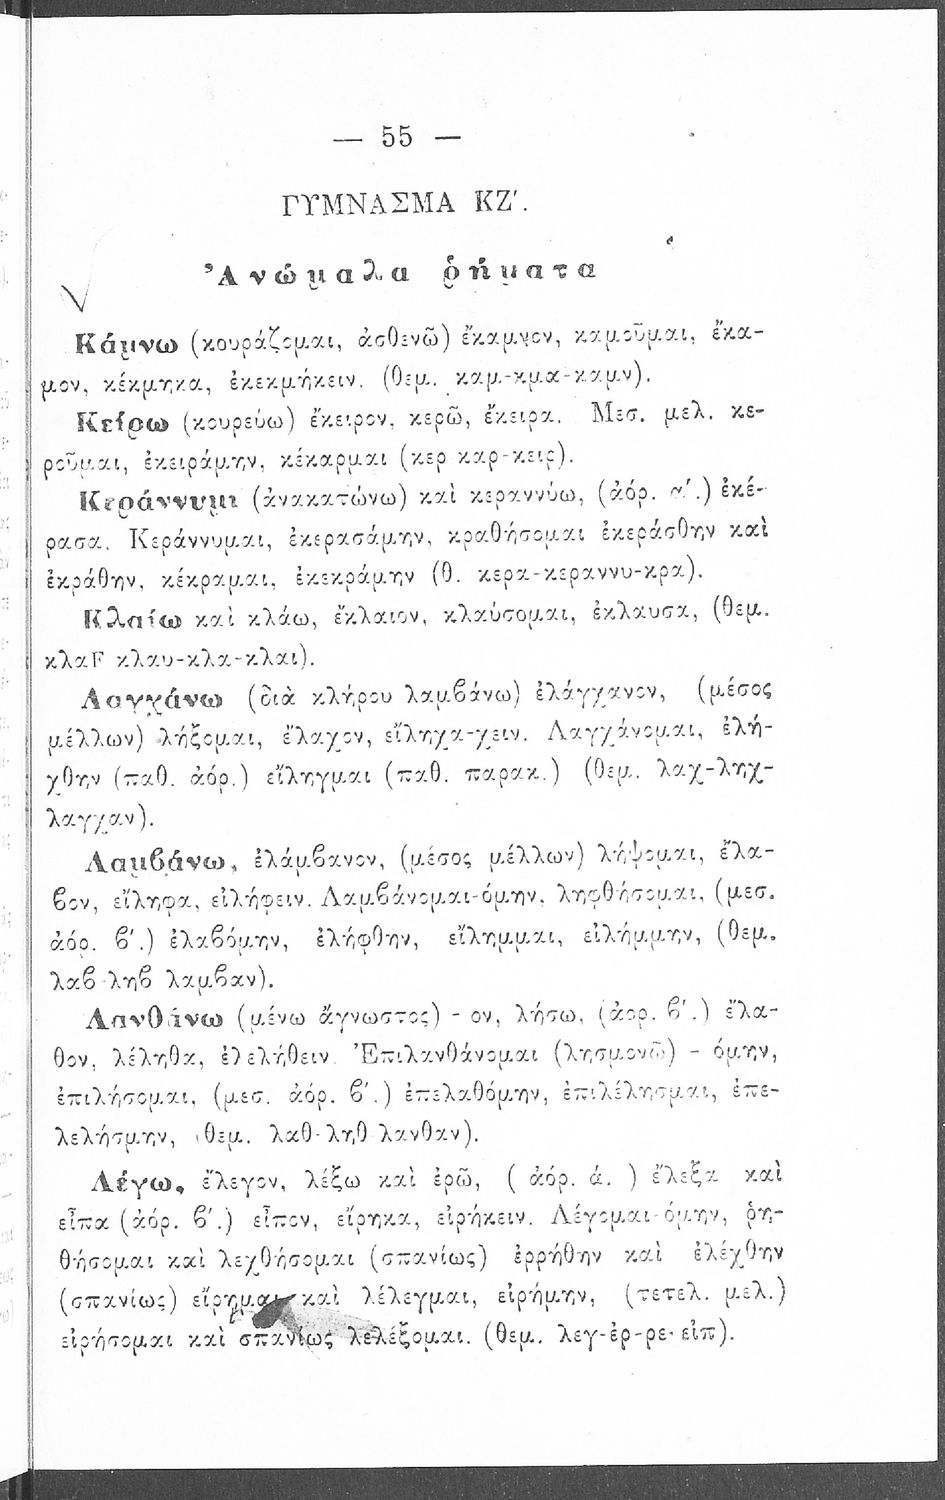 — 55 —
ΓΥΜΝΑΣΜΑ ΚΖ'.
Ἀνώμαλα ῥήματα
Κάμνω (κουράζομαι, ἀσθενῶ) ἔκαμνον, καμοῦμαι, ἔκα-
μον, κέκμηκα, ἐκεκμήκειν. (θεμ. καμ-κμα-καμν).
Κείρω (κουρεύω) ἔκειρον, κερῶ, ἔκειρα. Μεσ. μελ. κε-
ροῦμαι, ἐκειράμην, κέκαρμαι (κερ καρ-κειρ).
Κεράννυμι (ἀνακατώνω) καὶ κεραννύω, (ἀόρ. α'.) ἐκέ-
ρασα. Κεράννυμαι, ἐκερασάμην, κραθήσομαι ἐκεράσθην καὶ
ἐκράθην, κέκραμαι, ἐκεκράμην (θ. κερα-κεραννυ-κρα).
Κλαίω καὶ κλάω, ἔκλαιον, κλαύσομαι, ἐκλαυσα, (θεμ.
κλαF κλαυ-κλα-κλαι).
Λαγχάνω (διὰ κλήρου λαμβάνω) ἐλάγχανον, (μέσος
μέλλων) λήξομαι, ἔλαχον, εἴληχα-χειν. Λαγχάνομαι, ἐλή-
χθην (παθ. ἀόρ.) εἴληγμαι (παθ. παρακ.) (θεμ. λαχ-ληχ-
λαγχαν).
Λαμβάνω, ἐλάμβανον, (μέσος μέλλων) λήψομαι, ἔλα-
βον, εἴληφα, εἰλήφειν. Λαμβάνομαι-όμην, ληφθήσομαι, (μεσ.
ἀόρ. β'.) ἐλαβόμην, ἐλήφθην, εἴλημμαι, εἰλήμμην, (θεμ.
λαβ-ληβ λαμβαν).
Λανθάνω (μένω ἄγνωστος) - ον, λήσω, (ἀορ. β'.) ἔλα-
θον, λέληθα, ἐλελήθειν. Ἐπιλανθάνομαι (λησμονῶ) - όμην,
ἐπιλήσομαι, (μεσ. ἀόρ. β'.) ἐπελαθόμην, ἐπιλέλησμαι, ἐπε-
λελήσμην, (θεμ. λαθ-ληθ λανθαν).
Λέγω, ἔλεγον, λέξω καὶ ἐρῶ, ( ἀόρ. ά. ) ἔλεξα καὶ
εἶπα (ἀόρ. β'.) εἶπον, εἴρηκα, εἰρήκειν. Λέγομαι-όμην, ῥη-
θήσομαι καὶ λεχθήσομαι (σπανίως) ἐρρήθην καὶ ἐλέχθην
(σπανίως) εἴρημαι καὶ λέλεγμαι, εἰρήμην, (τετελ. μελ.)
εἰρήσομαι καὶ σπανίως λελέξομαι. (θεμ. λεγ-ἐρ-ρε-εἰπ).